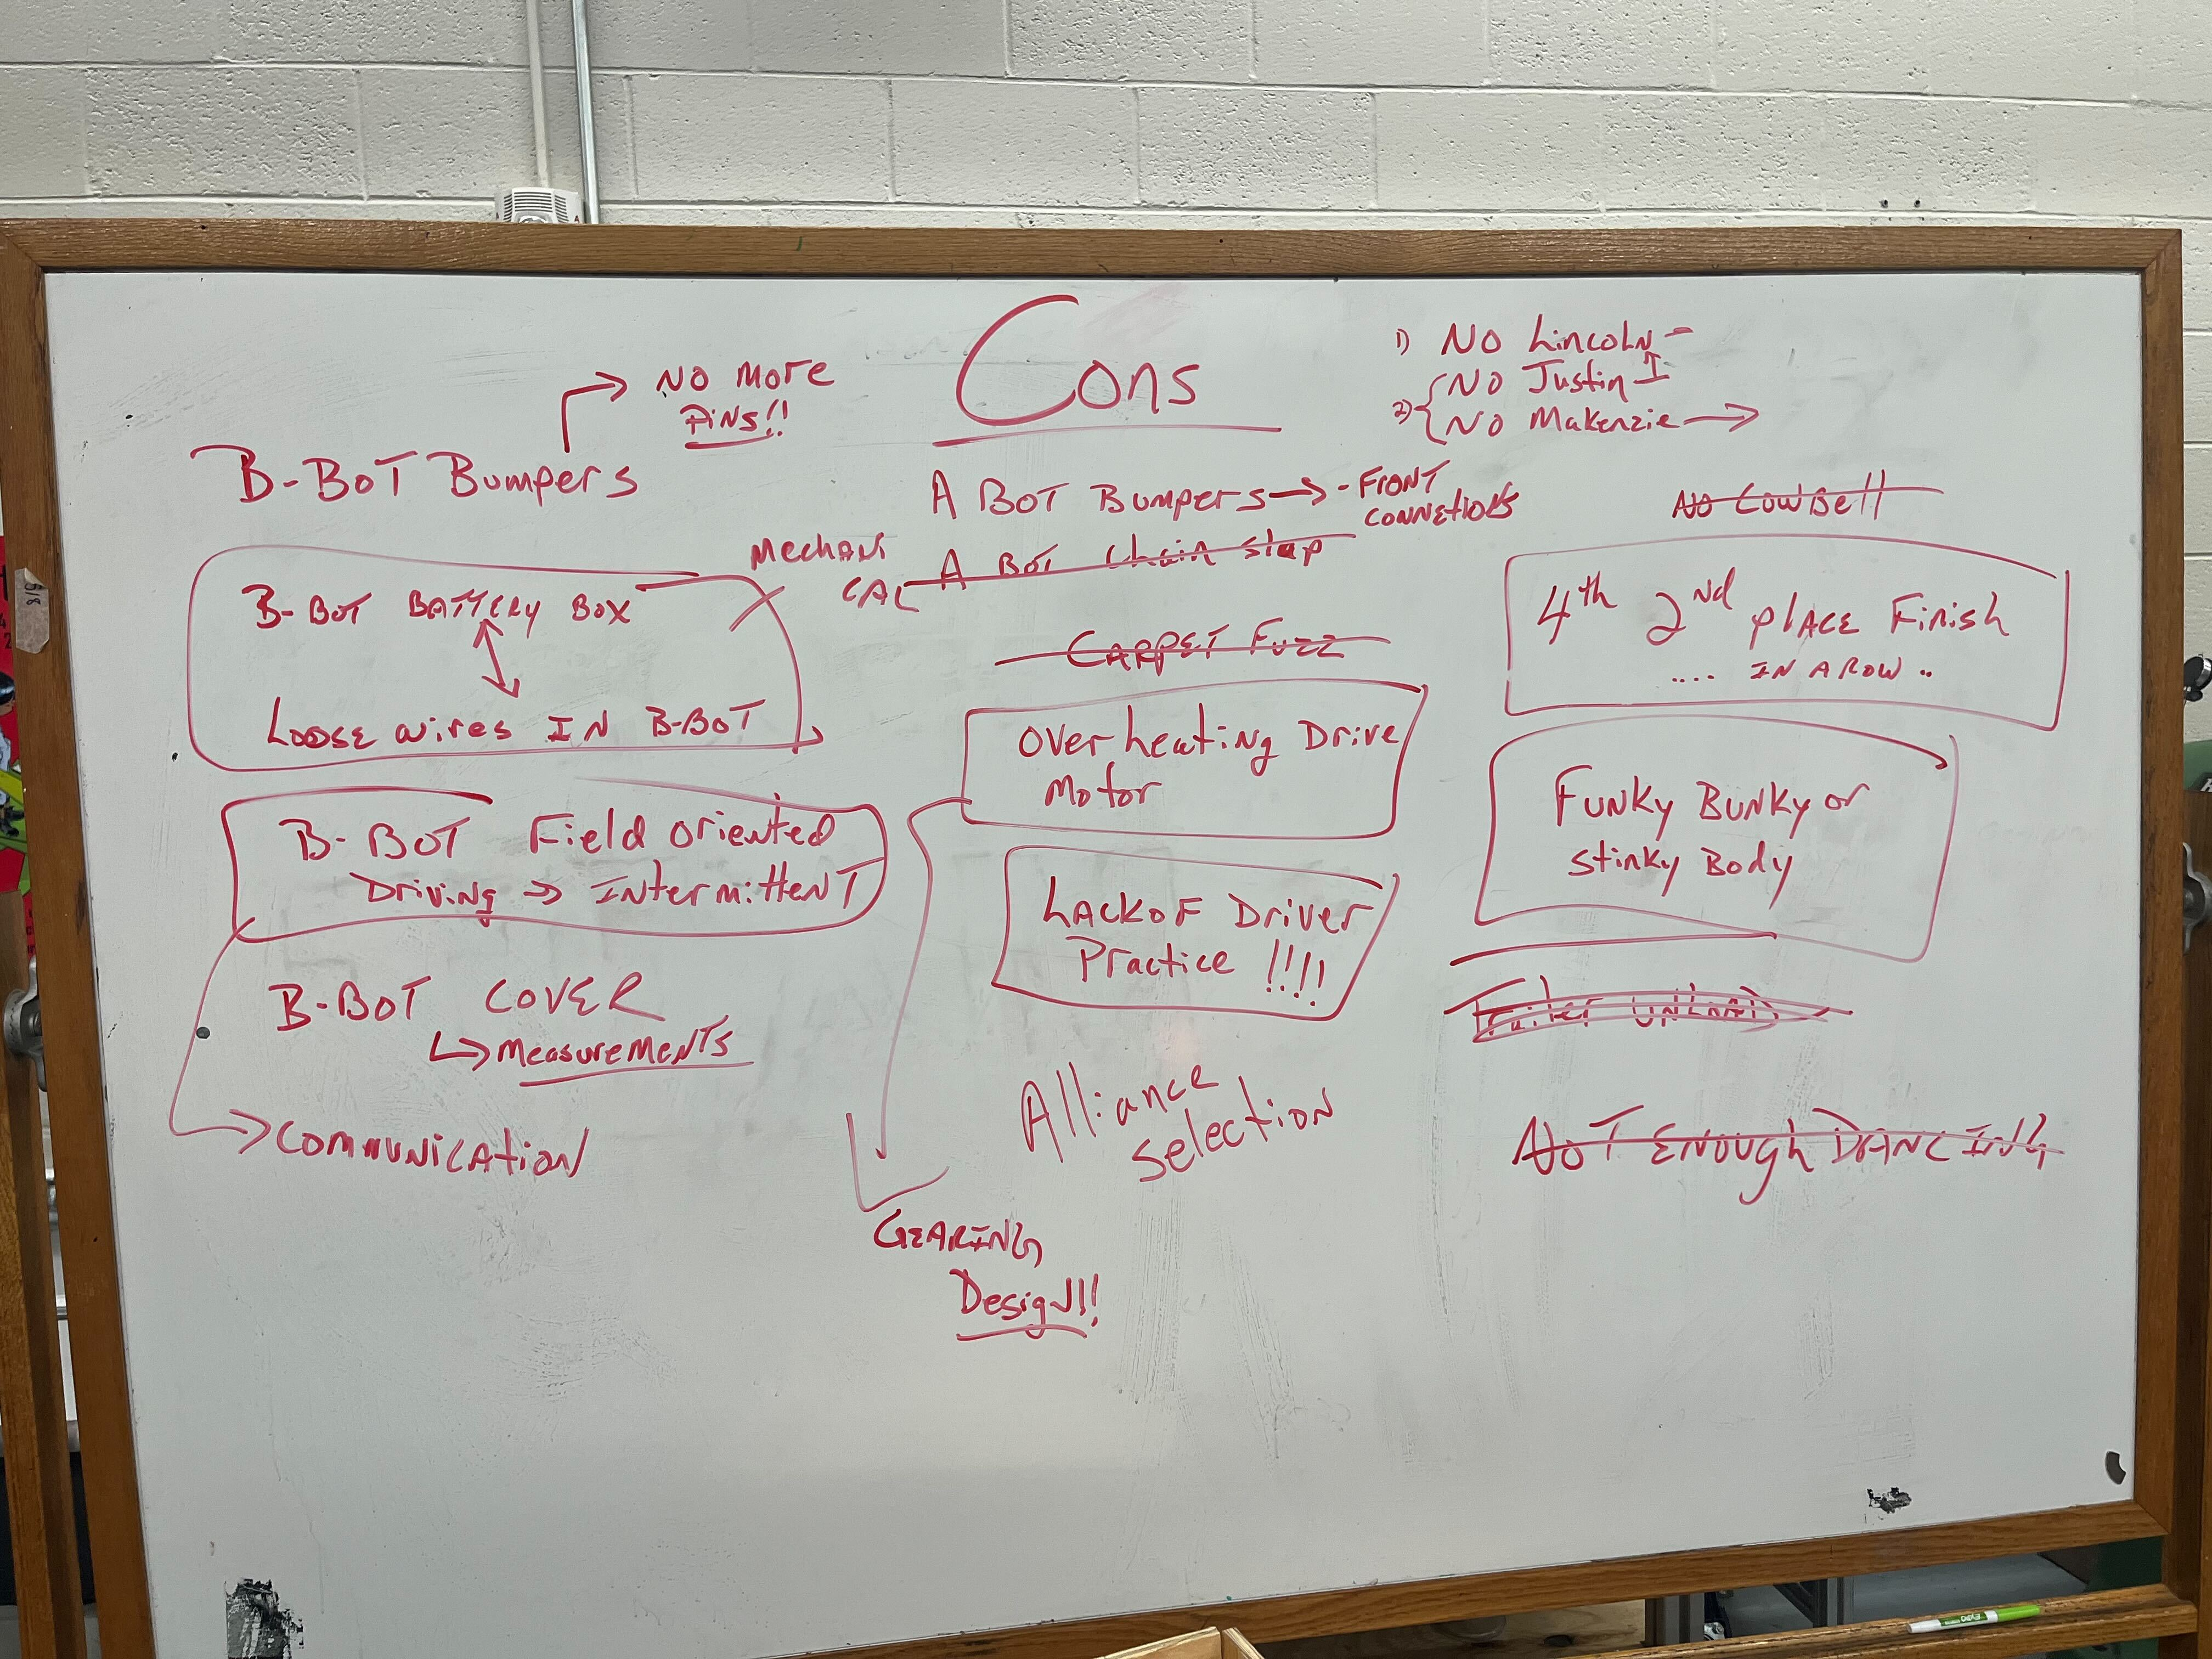 Cons
NO MORE
PINS!!
B-BOT Bumpers
B-BOT BATTERY BOX
LOOSE wires IN B-BOT
B-BOT Field oriented
Driving → INtermittenT
B-BOT COVER
↳ MeasuremeNTS
→ COMMUNICATION
A BOT Bumpers → - FRONT
CONNETIONS
MechANI
CAL
A BOT Chain slap
CARPET Fuzz
Over heating Drive
Motor
LACK OF Driver
Practice !!!!
Alliance
Selection
GEARING
Design!!
1) NO LincoLN -
2) { NO Justin I
NO Makenzie →
NO CowBell
4th 2nd plACE Finish
.... IN A ROW ..
FUNKy BUNKy or
stinky Body
NOT ENOUGH DANCING